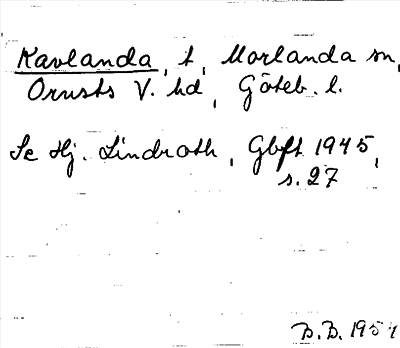 Kavlanda, t, Morlanda sn,
Orusts V. hd, Göteb. l.
Se Hj. Lindroth, Gbft 1945,
s. 27
B.B. 1951